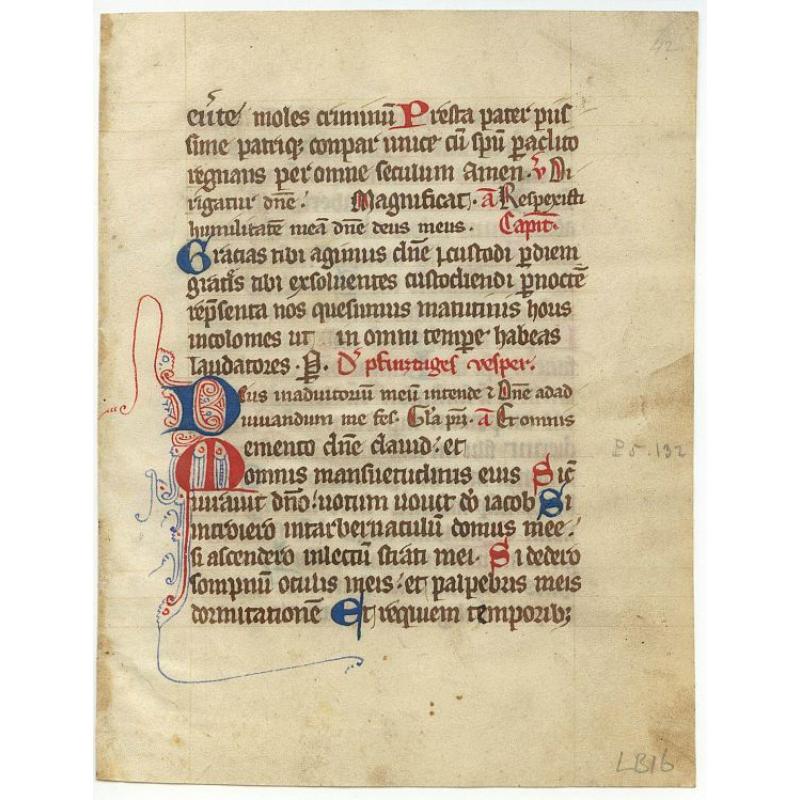 42
eũte moles criminũ Presta pater piis
sime patriq; conpar unice cũ spũ paclito
regnans per omne seculum Amen. v Di
rigatur dñe. Magnificat. a Respexisti
humilitatẽ meã dñe deus meus. Capit̃.
Gracias tibi agimus dñe custodi p diem
gratẽs tibi exsoluentes custodiendi p noctẽ
rep̃senta nos quesumus matutinis horis
incolomes ut in omni tempe habeas
laudatores. p̃.
vesper.
Deus in adiutoriũ meũ intende Dñe ad ad
iuuandum me fes. Gl̃a pr̃i. a Et omnis
Memento dñe dauid. et
omnis mansuetudinis eius Sic̃
iurauit dño. uotum uouit dõ iacob Si
introiero in tarbernaculũ domus mee.
si ascendero in lectũ strati mei. Si dedero
sompnũ oculis meis. et palpebris meis
dormitationẽ Et requiem temporib;
P5.132
LB16